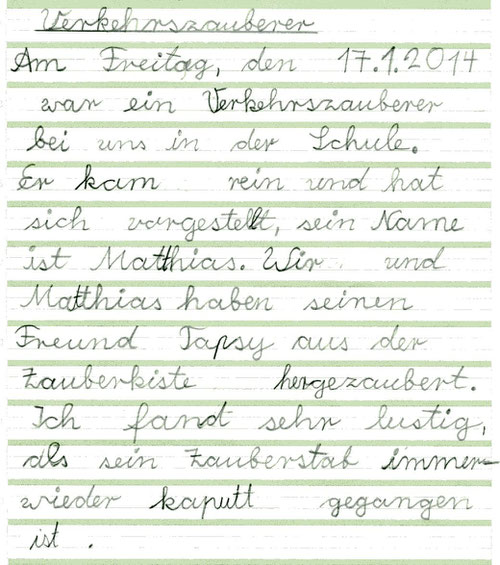 Verkehrszauberer
Am Freitag, den 17.1.2014
war ein Verkehrszauberer
bei uns in der Schule.
Er kam rein und hat
sich vorgestellt, sein Name
ist Matthias. Wir und
Matthias haben seinen
Freund Tapsy aus der
Zauberkiste hergezaubert.
Ich fand sehr lustig,
als sein Zauberstab immer-
wieder kaputt gegangen
ist .